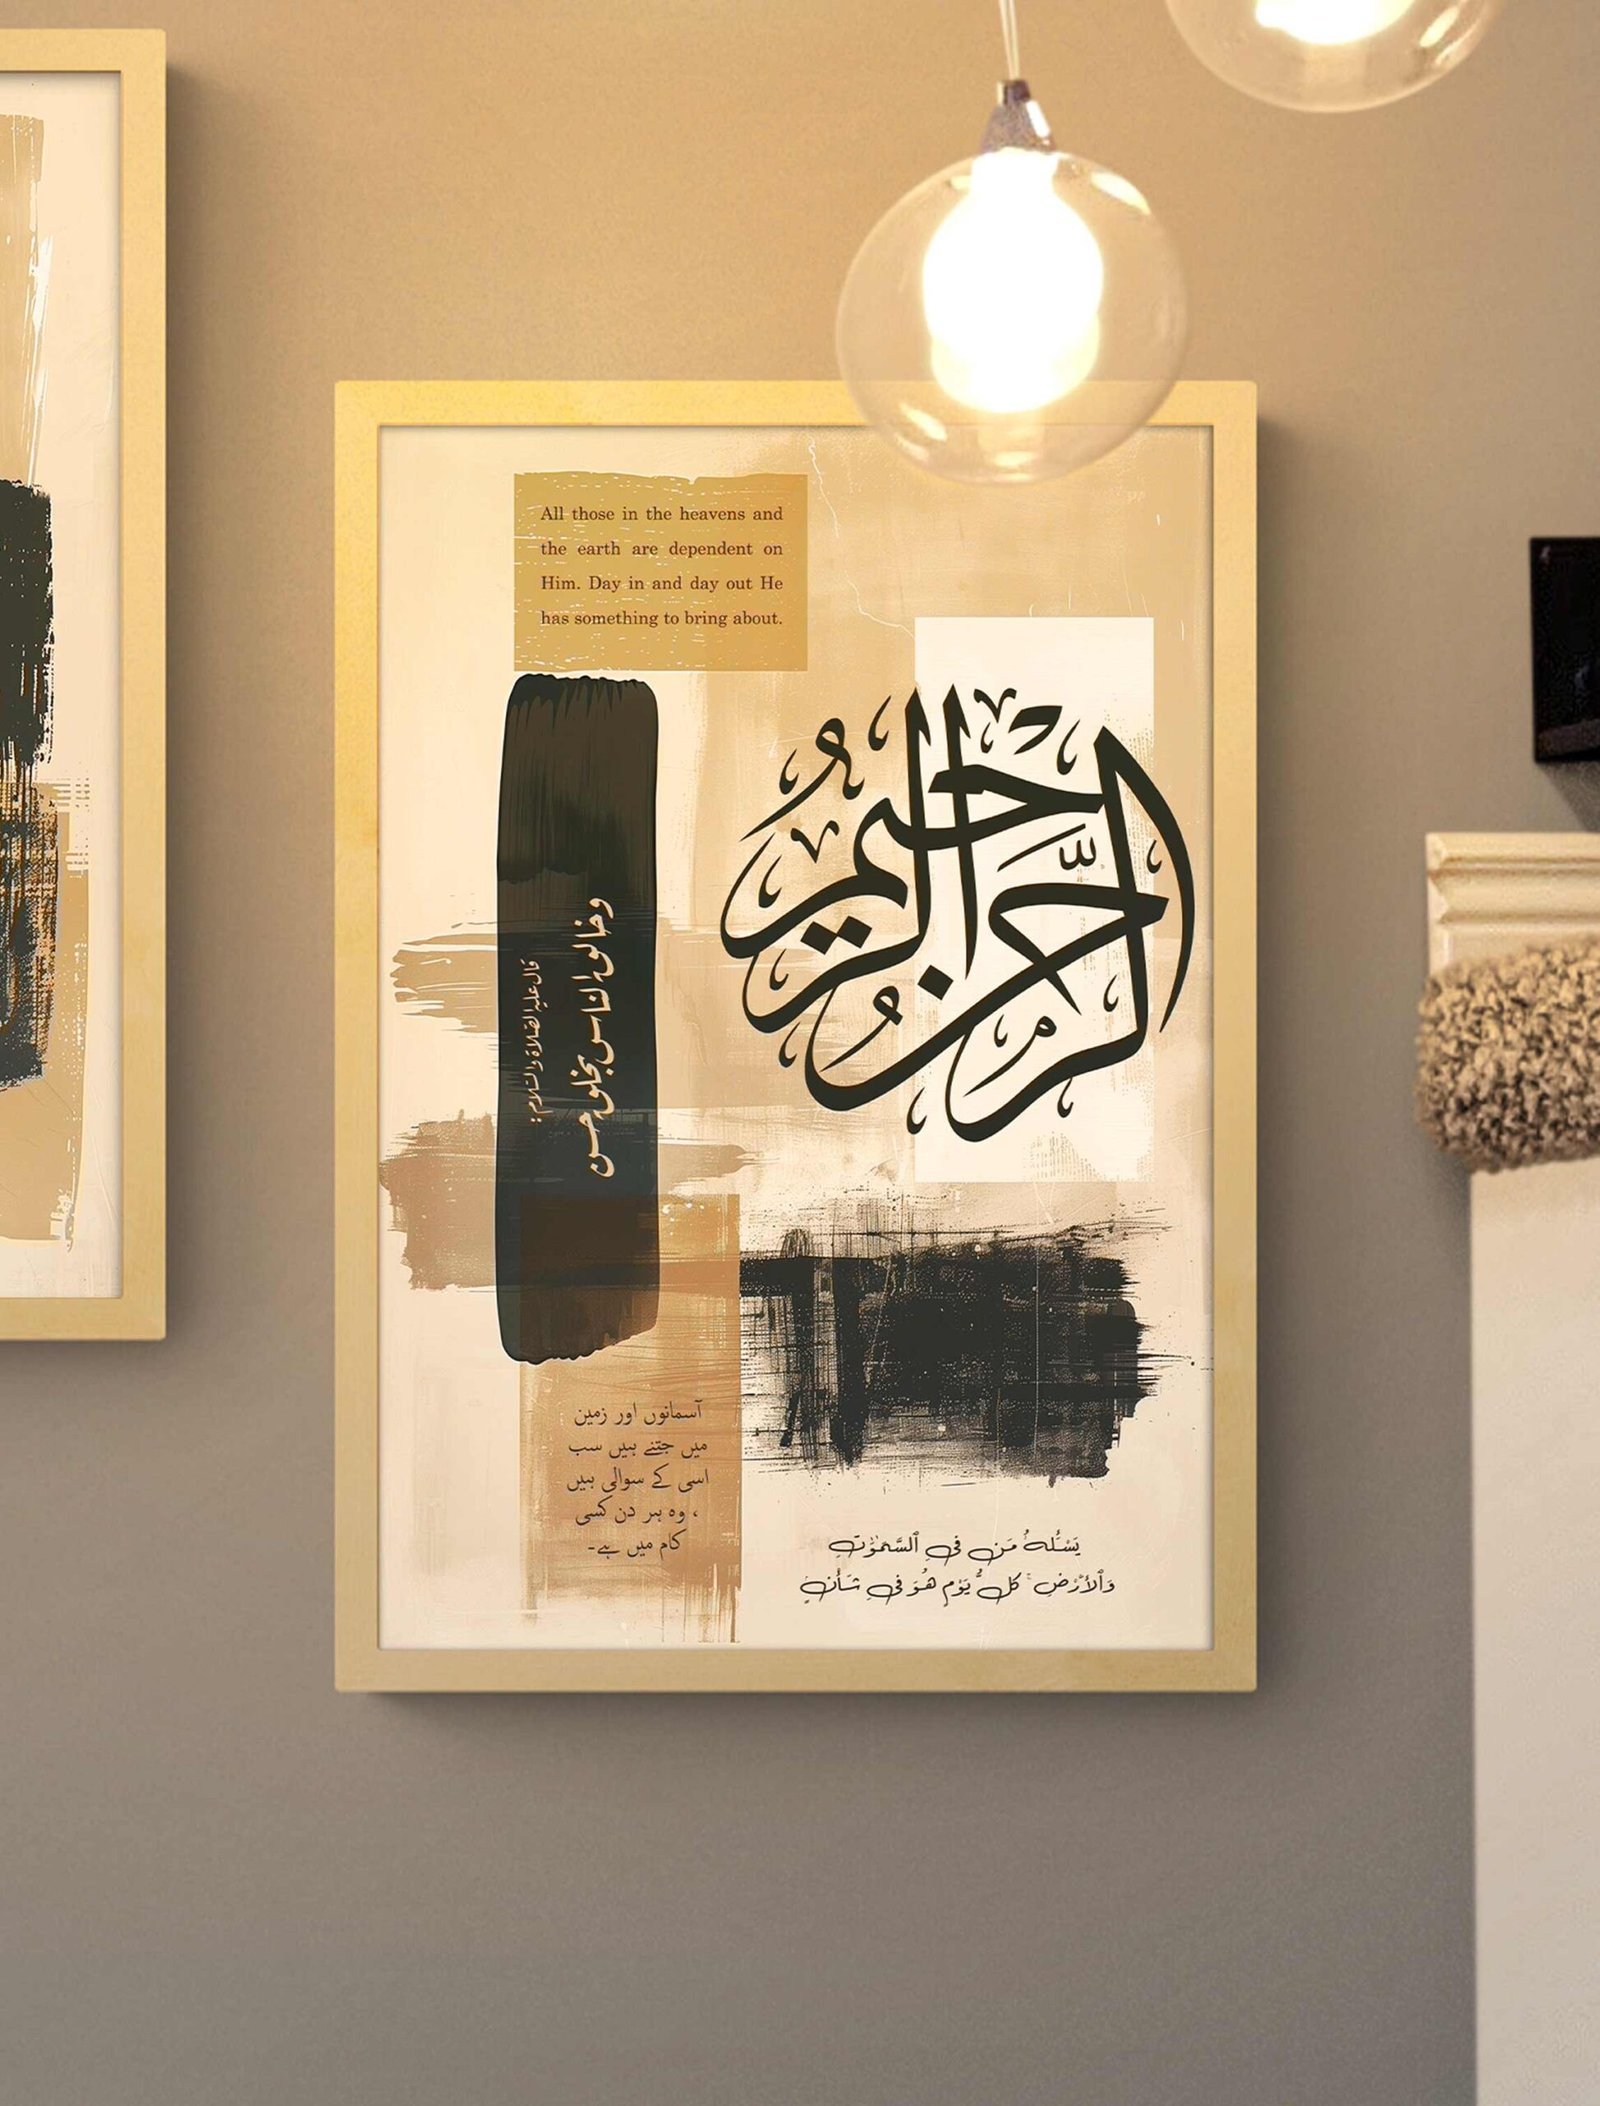 All those in the heavens and
the earth are dependent on
Him. Day in and day out He
has something to bring about.
الرحمن الرحيم
قال عليه الصلاة والسلام:
وخالق الناس بخلق حسن
آسمانوں اور زمین
میں جتنے ہیں سب
اسی کے سوالی ہیں
، وہ ہر دن کسی
کام میں ہے۔
يَسْـَٔلُهُۥ مَن فِى ٱلسَّمَـٰوَٰتِ
وَٱلْأَرْضِ ۚ كُلَّ يَوْمٍ هُوَ فِى شَأْنٍ